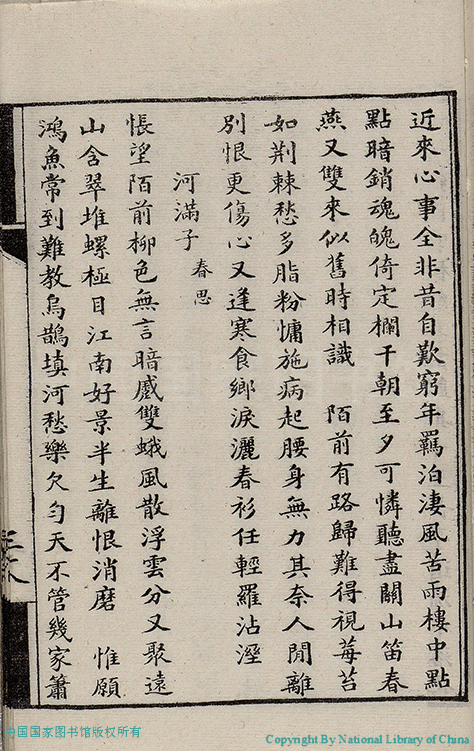 近來心事全非昔自歎窮年羈泊淒風苦雨樓中點
點暗銷魂魄倚定欄干朝至夕可憐聽盡關山笛春
燕又雙來似舊時相識　陌前有路歸難得視莓苔
如荆棘愁多脂粉慵施病起腰身無力其奈人閒離
別恨更傷心又逢寒食鄉淚灑春衫任輕羅沾溼
河滿子　春思
悵望陌前柳色無言暗慼雙蛾風散浮雲分又聚遠
山含翠堆螺極目江南好景半生離恨消磨　惟願
鴻魚常到難教烏鵲填河愁樂欠勻天不管幾家簫
中国国家图书馆版权所有
Copyright By National Library of China